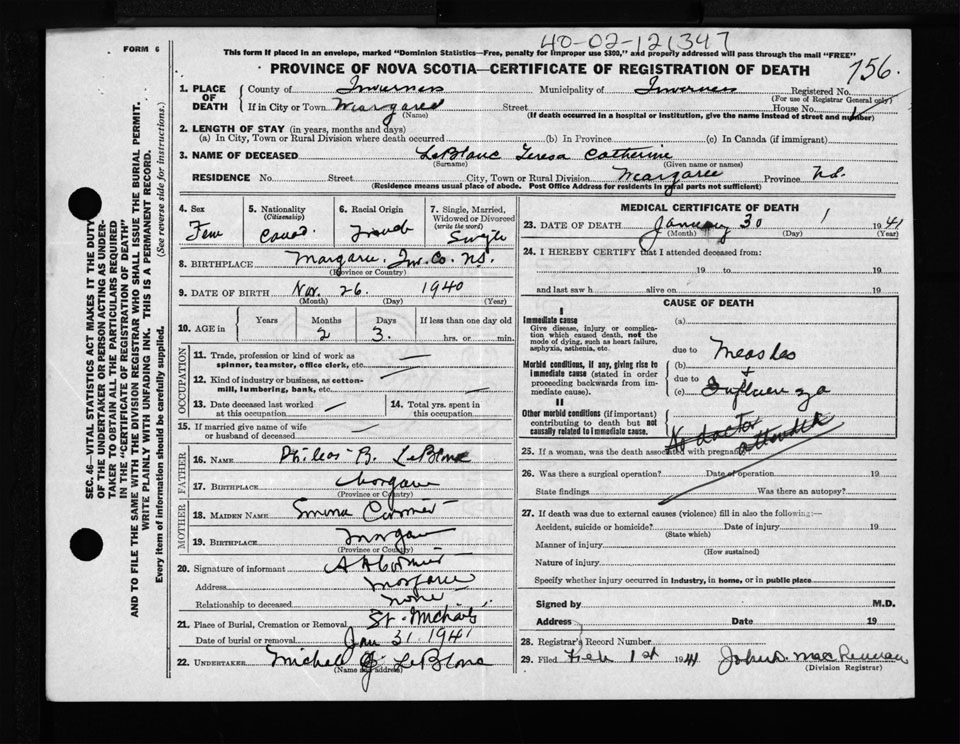 40-02-121347
FORM 6
This form if placed in an envelope, marked "Dominion Statistics—Free, penalty for improper use $300," and properly addressed will pass through the mail "FREE"
PROVINCE OF NOVA SCOTIA—CERTIFICATE OF REGISTRATION OF DEATH
756.
1. PLACE OF DEATH
County of Inverness Municipality of Inverness Registered No.
(For use of Registrar General only)
If in City or Town Margaree Street House No.
(Name) (If death occurred in a hospital or institution, give the name instead of street and number)
2. LENGTH OF STAY (in years, months and days)
(a) In City, Town or Rural Division where death occurred (b) In Province (c) In Canada (if immigrant)
3. NAME OF DECEASED LeBlanc Teresa Catherine
(Surname) (Given name or names)
RESIDENCE No. Street City, Town or Rural Division Margaree Province N.S.
(Residence means usual place of abode. Post Office Address for residents in rural parts not sufficient)
4. Sex Fem
5. Nationality (Citizenship) Canad.
6. Racial Origin French
7. Single, Married, Widowed or Divorced (write the word) Single
8. BIRTHPLACE Margaree, Inv. Co. N.S.
(Province or Country)
9. DATE OF BIRTH Nov. 26. 1940
(Month) (Day) (Year)
10. AGE in Years Months Days If less than one day old
2 3. hrs. or min.
OCCUPATION
11. Trade, profession or kind of work as spinner, teamster, office clerk, etc. —
12. Kind of industry or business, as cotton-mill, lumbering, bank, etc. —
13. Date deceased last worked at this occupation —
14. Total yrs. spent in this occupation —
15. If married give name of wife or husband of deceased —
FATHER
16. NAME Phileas B. LeBlanc
17. BIRTHPLACE Margaree
(Province or Country)
MOTHER
18. MAIDEN NAME Emma Cormier
19. BIRTHPLACE Margaree
(Province or Country)
20. Signature of informant A A Cormier
Address Margaree
Relationship to deceased none
21. Place of Burial, Cremation or Removal St. Michael's
Date of burial or removal Jan 31 1941
22. UNDERTAKER Michael J. LeBlanc
(Name and address)
MEDICAL CERTIFICATE OF DEATH
23. DATE OF DEATH January 30 1941
(Month) (Day) (Year)
24. I HEREBY CERTIFY that I attended deceased from:
19 to 19
and last saw h alive on 19
CAUSE OF DEATH
I
Immediate cause
Give disease, injury or complication which caused death, not the mode of dying, such as heart failure, asphyxia, asthenia, etc.
(a)
due to Measles
Morbid conditions, if any, giving rise to immediate cause (stated in order proceeding backwards from immediate cause).
(b) +
due to
(c) Influenza
II
Other morbid conditions (if important) contributing to death but not causally related to immediate cause.
No doctor attended
25. If a woman, was the death associated with pregnancy
26. Was there a surgical operation? Date of operation 19
State findings Was there an autopsy?
27. If death was due to external causes (violence) fill in also the following:—
Accident, suicide or homicide? Date of injury 19
(State which)
Manner of injury
(How sustained)
Nature of injury
Specify whether injury occurred in industry, in home, or in public place
Signed by M.D.
Address Date 19
28. Registrar's Record Number
29. Filed Feb 1st 1941 John D. MacLennan
(Division Registrar)
SEC. 46—VITAL STATISTICS ACT MAKES IT THE DUTY
OF THE UNDERTAKER OR PERSON ACTING AS UNDER-
TAKER TO OBTAIN ALL THE PARTICULARS REQUIRED
IN THE "CERTIFICATE OF REGISTRATION OF DEATH"
AND TO FILE THE SAME WITH THE DIVISION REGISTRAR WHO SHALL ISSUE THE BURIAL PERMIT.
WRITE PLAINLY WITH UNFADING INK. THIS IS A PERMANENT RECORD.
Every item of information should be carefully supplied. (See reverse side for instructions.)